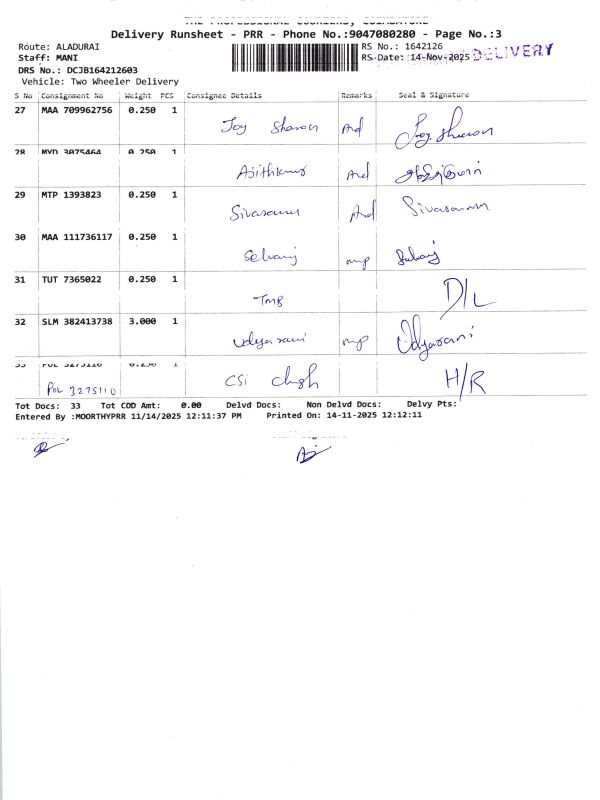 THE PROFESSIONAL COURIERS, COIMBATORE
Delivery Runsheet - PRR - Phone No.:9047080280 - Page No.:3
Route: ALADURAI
RS No.: 1642126
Staff: MANI
RS-Date: 14-Nov-2025 DELIVERY
DRS No.: DCJB164212603
Vehicle: Two Wheeler Delivery
S No Consignment No Weight PCS Consignee Details Remarks Seal & Signature
27 MAA 709962756 0.250 1
Joy Sharon
28 MYD 3075464 0.250 1
Ajithkumar
29 MTP 1393823 0.250 1
Sivasaran
30 MAA 111736117 0.250 1
Selvaraj
31 TUT 7365022 0.250 1
TMB D/L
32 SLM 382413738 3.000 1
Udyarani Udyarani
33 POL 3275110 0.250 1
POL 3275110 CSI H/R
Tot Docs: 33 Tot COD Amt: 0.00 Delvd Docs: Non Delvd Docs: Delvy Pts:
Entered By :MOORTHYPRR 11/14/2025 12:11:37 PM Printed On: 14-11-2025 12:12:11